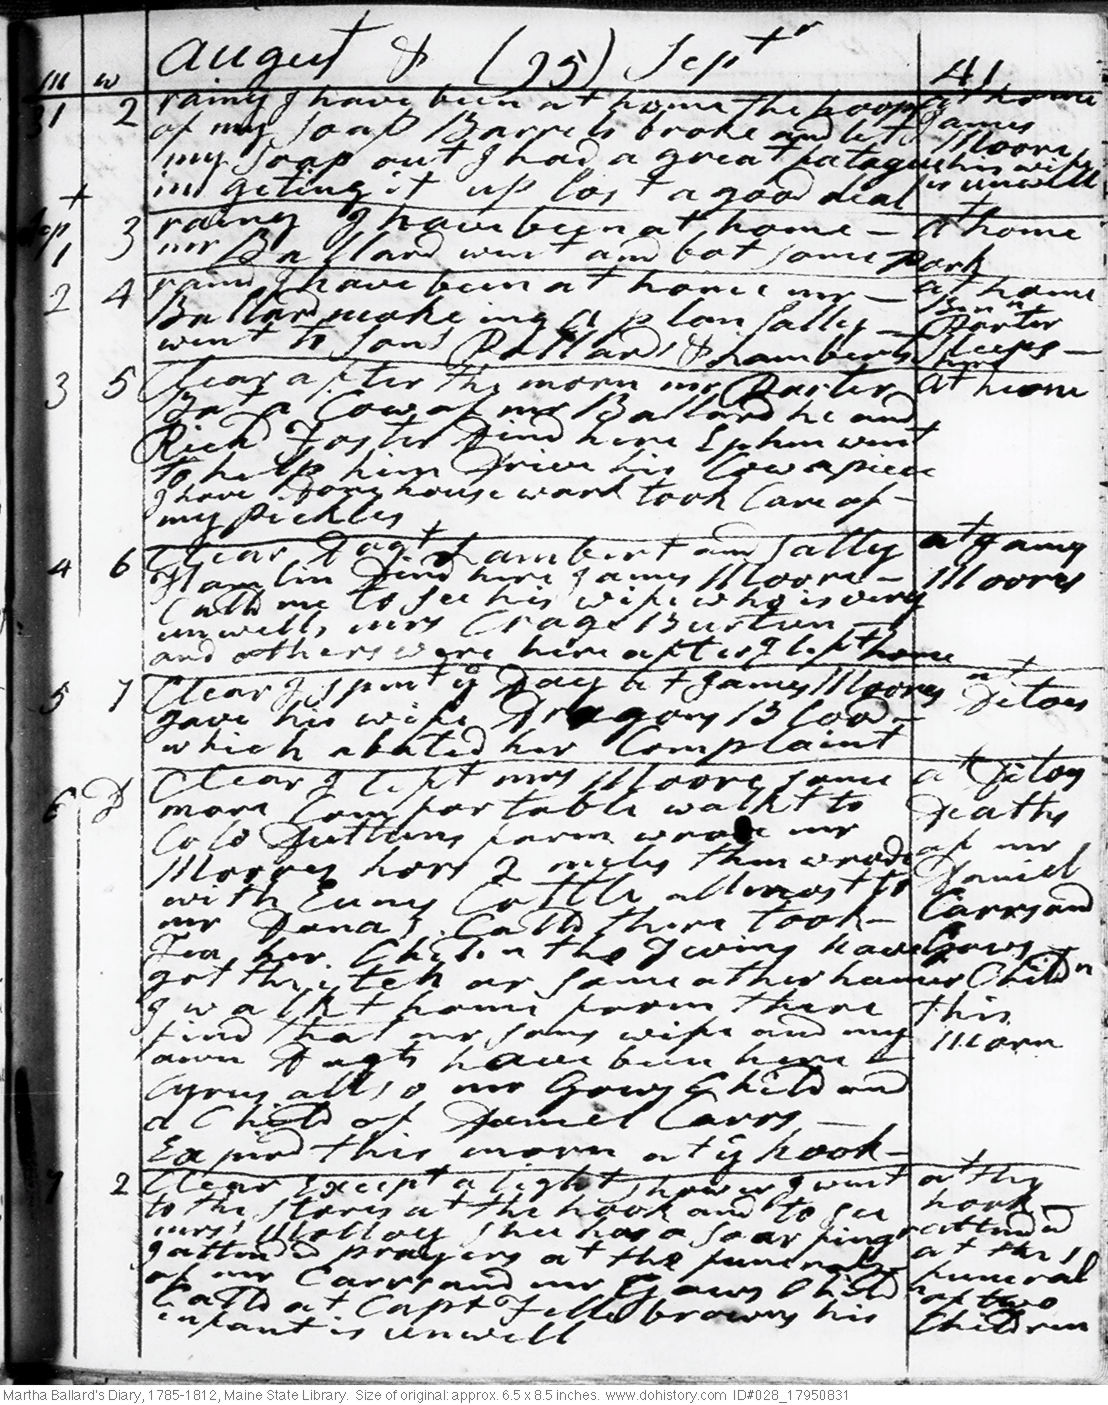 August & (95) Sept^r
m w 41
31 2 rainy I have been at home the hoops at home
of my Soap Barrels broke and let James
my Soap out I had a great fatague Moores his wife
in geting it up lost a good deal is unwell
Sep 1 3 rainy I have been at home – at home
mr Ballard went and bot some pork
2 4 rainy I have been at home mr – at home
Ballard makeing a plan Sally – Porter
went to sons Pollards & Lamberts Sleeps – here
3 5 Clear after the morn mr Porter at home
Bot a Cow of mr Ballard he and
Rich^d Foster dind here Ephm went
to help him drive his Cow apiece
I have done house work took Care of –
my Pickles
4 6 Clear Dagt Lambert and Sally at James
Hamlin dind here James Moore – Moores
Calld me to See his wife who is very
unwell, mrs Crage Burtun –
and others were here after I left home
5 7 Clear I spent ye Day at James Moores at Ditoes
gave his wife Dragons Blood –
which abated her Complaint
6 D Clear I left mrs Moore some at Ditoes
more Comfortable walkt to Deaths
Colo Duttuns form wrode mr of mr
Moores hors 2 miles then wrode Daniel
with Cottle allmost to Carrs and
mr Danas. Calld there took – Gows
Tea her Children the Twins have Childn
got the itch or some other humer this
I walkt home form there Morn
find that mr sons wife and my
own Dagts have been here –
Cyrus allso mr Gows Child and
a Child of Daniel Carrs –
Expird this morn at ye hook –
7 2 Clear Except a light shower I went at the
to the Stores at the hook and to See hook
mrs Molloy Shee has a Soar finger attend^d
I attend^d prayers at the funerals at the
of mr Carrs and mr Gows Child funeral
Calld at Capt Fellebrowns his of two
infant is unwell Children
Martha Ballard's Diary, 1785-1812, Maine State Library. Size of original: approx. 6.5 x 8.5 inches. www.dohistory.com ID#028_17950831